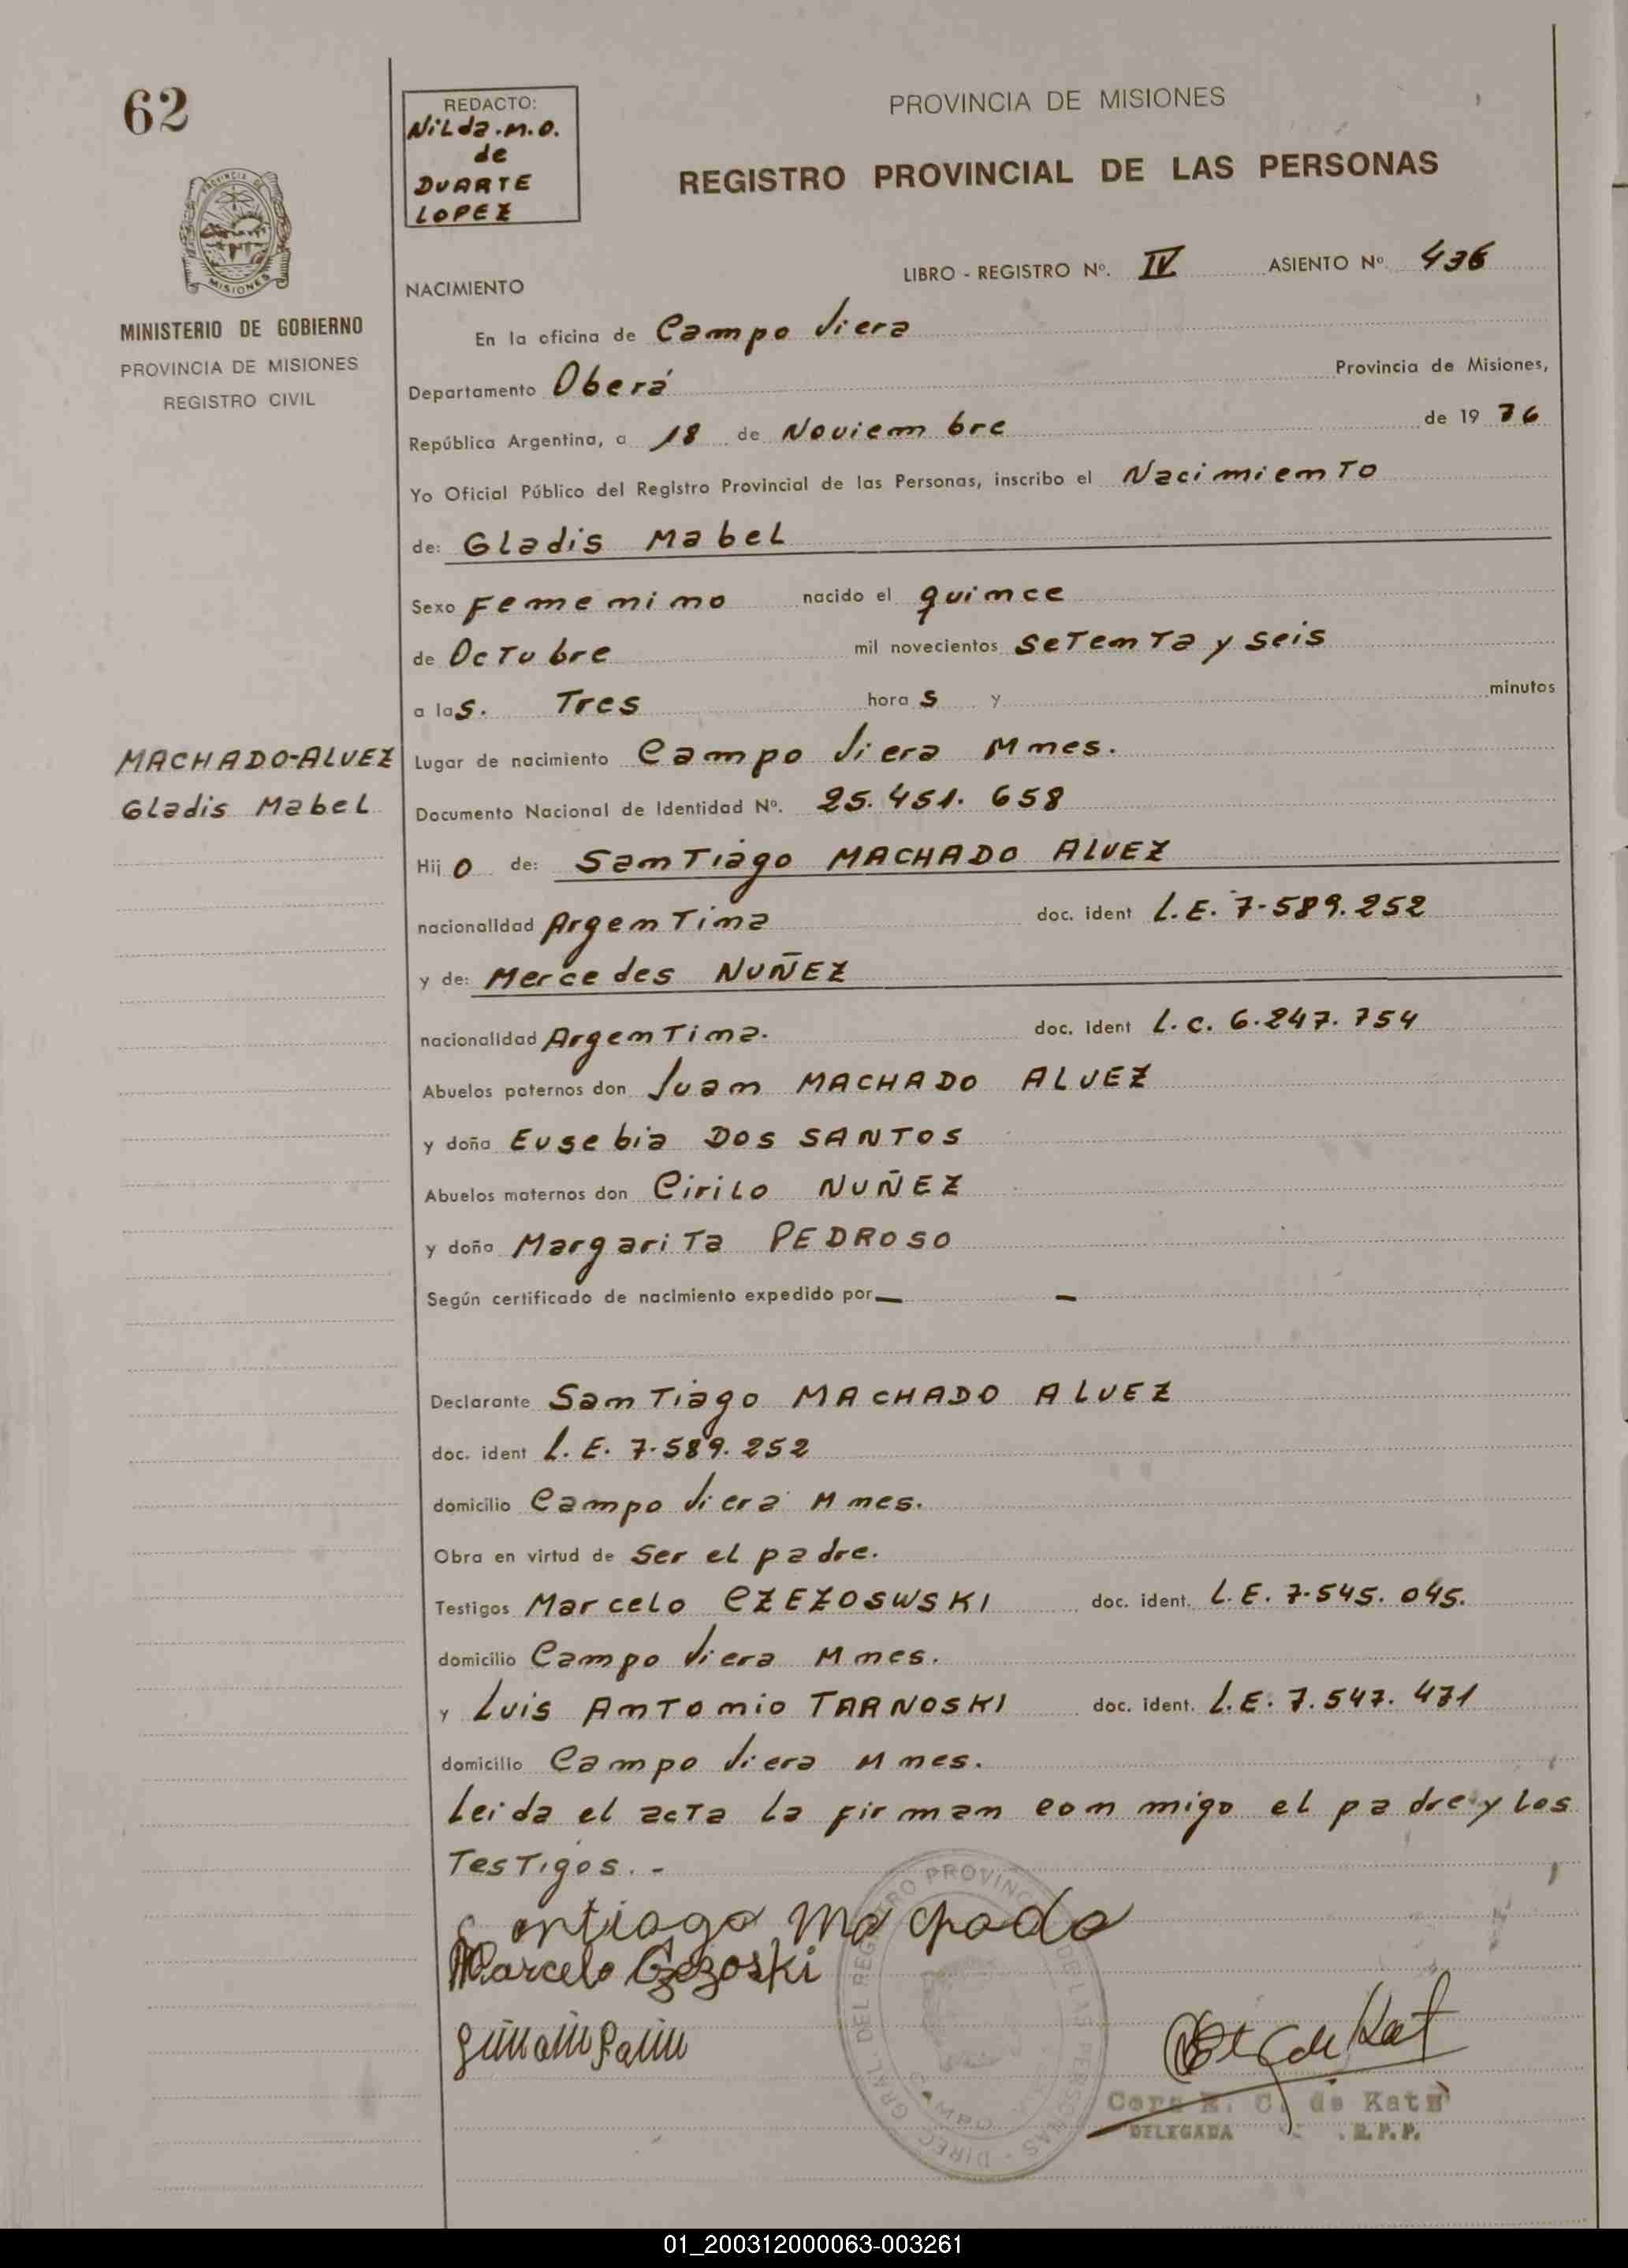 62
REDACTO:
Nilda.M.O.
de
DUARTE
LOPEZ
PROVINCIA DE MISIONES
REGISTRO PROVINCIAL DE LAS PERSONAS
PROVINCIA DE
MISIONES
MINISTERIO DE GOBIERNO
PROVINCIA DE MISIONES
REGISTRO CIVIL
LIBRO - REGISTRO Nº. IV ASIENTO Nº 436
NACIMIENTO
En la oficina de Campo Viera
Departamento Oberá Provincia de Misiones,
República Argentina, a 18 de Noviembre de 19 76
Yo Oficial Público del Registro Provincial de las Personas, inscribo el Nacimiento
de: Gladis Mabel
Sexo Femenino nacido el quince
de Octubre mil novecientos Setenta y seis
a las. Tres hora s y minutos
MACHADO-ALVEZ
Gladis Mabel
Lugar de nacimiento Campo Viera Mnes.
Documento Nacional de Identidad Nº. 25.451.658
Hij o de: Santiago MACHADO ALVEZ
nacionalidad Argentina doc. ident L.E. 7.589.252
y de: Mercedes NUÑEZ
nacionalidad Argentina. doc. ident L.C. 6.247.754
Abuelos paternos don Juan MACHADO ALVEZ
y doña Eusebia DOS SANTOS
Abuelos maternos don Cirilo NUÑEZ
y doña Margarita PEDROSO
Según certificado de nacimiento expedido por — —
Declarante Santiago MACHADO ALVEZ
doc. ident L.E. 7.589.252
domicilio Campo Viera Mnes.
Obra en virtud de Ser el padre.
Testigos Marcelo CZEZOSWSKI doc. ident. L.E. 7.545.045.
domicilio Campo Viera Mnes.
y Luis Antonio TARNOSKI doc. ident. L.E. 7.547.471
domicilio Campo Viera Mnes.
Leida el acta la firman conmigo el padre y los
Testigos.-
Santiago Machado
Marcelo Czezoski
DIREC. GRAL. DEL REGISTRO PROVINCIAL DE LAS PERSONAS
de Katz
DELEGADA R.P.P.
01_200312000063-003261